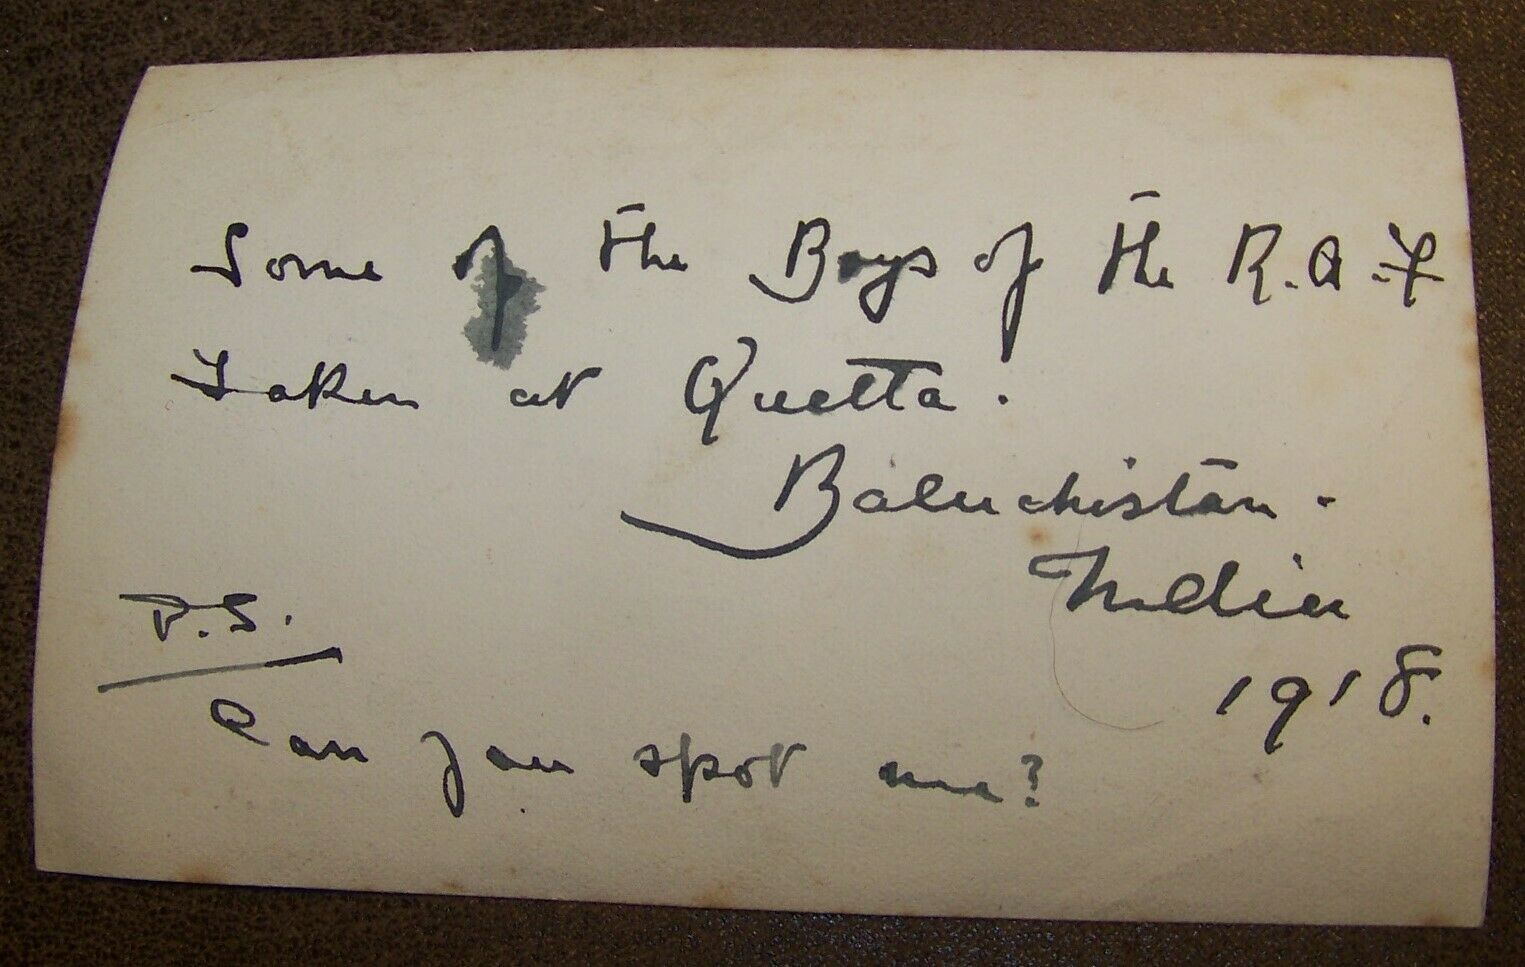 Some of the Boys of the R.A.F
Taken at Quetta.
Baluchistan.
India
1918.
P.S.
Can you spot me?